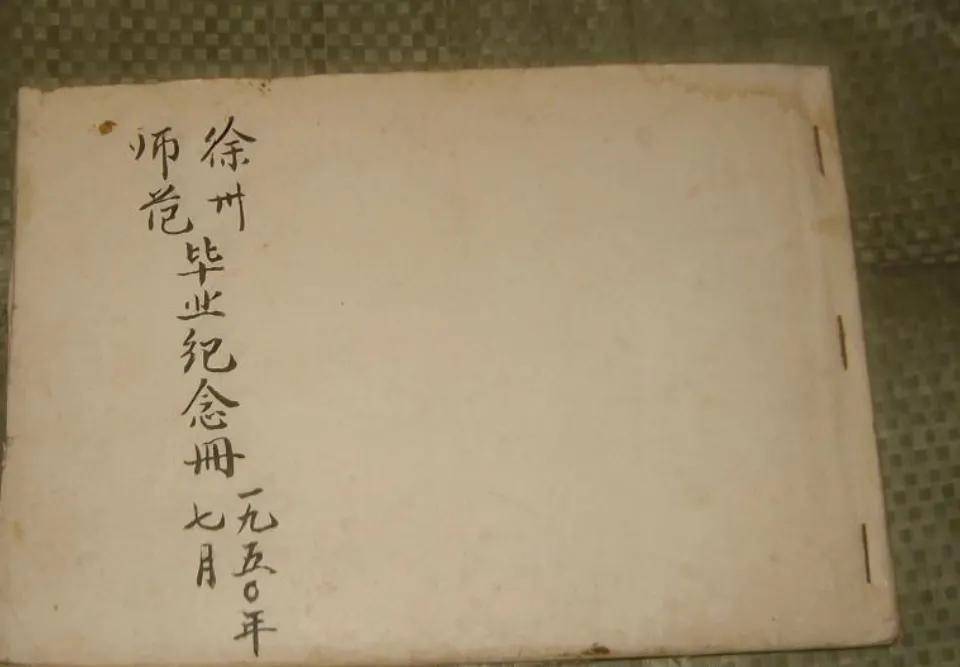 徐州
师范
毕业纪念册
一九五〇年
七月